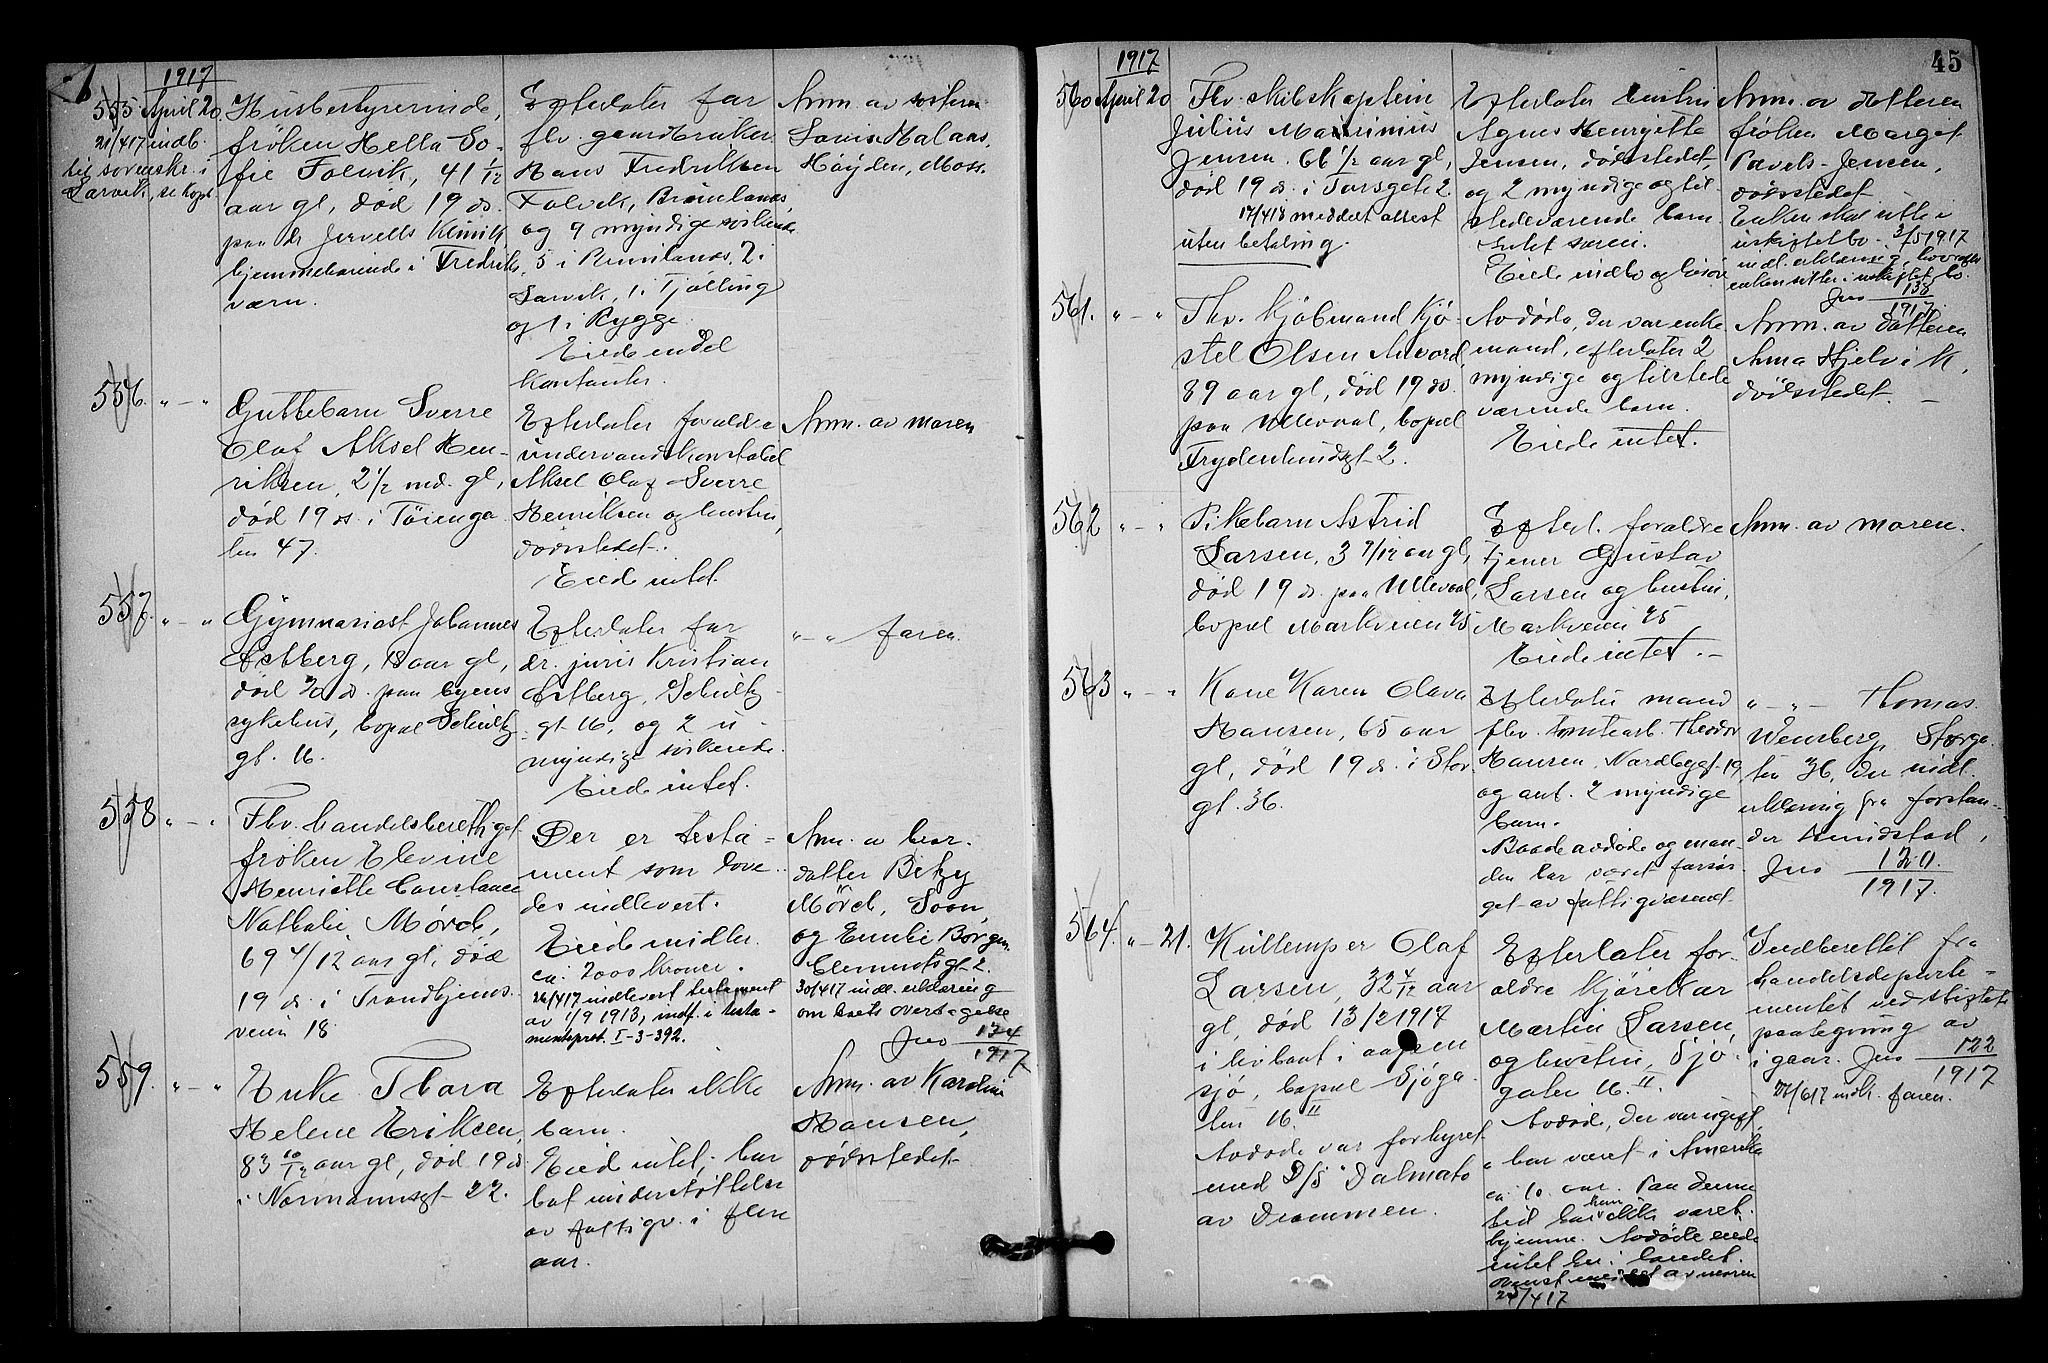 1917
555 April 20
21/4 17 indb.
til sorenskr. i
Larvik, se kopi
Husbestyrerinde,
frøken Hella So-
fie Folvik, 41 1/12
aar gl, død 19 ds.
paa dr Jervells Klinik
hjemmehørende i Fredriks
værn.
Efterlater far
flv. gaardbruker
Hans Fredriksen
Folvik, Brunlanæs,
og 9 myndige søskende
5 i Brunlanæs, 2 i
Larvik, 1 i Tjølling
og 1 i Rygge.
Eiede endel
kontanter.
Anm. av søsteren
Høyden, Moss.
556. " - "
Guttebarn Sverre
Olaf Aksel Hen-
riksen, 2 1/2 md. gl,
død 19 ds. i Tøienga
ten 47.
Efterlater forældre
undervandskonstabel
Aksel Olaf Sverre
Henriksen og hustru,
dødsstedet.
Eiede intet.
Anm. av moren
557. " - "
Gymnasiast Johannes
Østberg, 18 aar gl,
død 20 ds. paa byens
sykehus, bopæl Schultz
gt. 16.
Efterlater far
dr. juris Kristian
Østberg, Schultz-
gt 16, og 2 u-
myndige søskende.
Eiede intet.
" - " faren.
558 " - "
Fhv. handelsberettiget
frøken Elevine
Henriette Constance
Nathalie Mørch,
69 4/12 aar gl, død
19 ds. i Trondhjems-
veien 18
Der er testa-
ment som love-
des indlevert.
Eiede midler
ca. 2000 kroner.
26/4 17 indlevert testament
av 1/9 1913, indf. i testa-
mentsprot. I-3-392.
Anm. av bror-
datter Betzy
Mørch, Soon,
og Emilie Borgen
Clemensgt 2.
30/4 17 indl. erklæring
om boets overtagelse
Jno 134
1917
559. " - "
Enke Thora
Helene Eriksen,
83 10/12 aar gl, død 19 ds
i Normannsgt 22.
Efterlater ikke
barn.
Eiede intet, har
hat understøttelse
av fattigv. i flere
aar.
Anm. av Karoline
Hansen,
dødsstedet
45
1917
560 April 20
Fhv. skibskaptein
Julius Maximius
Jensen, 66 1/2 aar gl,
død 19 ds. i Torsgate 2.
17/4 18 meddelt attest
uten betaling.
Efterlater hustru
Agnes Henryette
Jensen, dødsstedet
og 2 myndige og til-
stedeværende barn.
Eiede indbo og løsøre
Anm. av datteren
frøken Margit
Pavels-Jensen,
dødsstedet
Enken skal sitte i
uskiftet bo. 3/5 1917
indl. erklæring, hvorefter
enken sitter i uskiftet bo.
Jno 138
1917
561. " - "
Fhv. kjøbmand Kjø-
stel Olsen Arvord
89 aar gl, død 19 ds.
paa Ullevaal, bopæl
Frydenlundsgt 2.
Avdøde, der var enke-
mand, efterlater 2
myndige og tilstede
værende barn.
Eiede intet.
Anm. av datteren
Anna Hjelvik,
dødsstedet.
562 " - "
Pikebarn Astrid
Larsen, 3 7/12 aar gl,
død 19 ds. paa Ullevaal,
bopæl Markveien 45
Efterl. forældre
tjener Gustav
Larsen og hustru,
Markveien 45
Eiede intet.
Anm. av moren.
563 " - "
Kone Karen Olava
Hansen, 65 aar
gl, død 19 ds. i Stor-
gt. 36.
Efterlater mand
fhv. tomtearb. Theodor
Hansen, Nordbygt 19
og ant. 2 myndige
barn.
Baade avdøde og man-
den har været forsør-
get av fattigvæsenet
" - " - Thomas
Wensberg, Storga-
ten 36, der indl.
erklæring fra forstan-
der
Jno 120
1917.
564. " - 21.
Kullemper Olaf
Larsen, 32 4/12 aar
gl, død 13/2 1917
i livbaat i aapen
sjø, bopæl Sjøga-
ten 16. II
Avdøde var forhyret
med D/S "Dalmata
av Drammen.
Efterlater for-
ældre kjørekar
Martin Larsen,
og hustru, Sjø-
gaten 16. II.
Avdøde, der var ugift,
har været i Amerika
ca. 10 aar. Paa denne
tid har han ikke været
hjemme. Avdøde eiede
intet her i landet.
ovenst meddelt av moren
23/4 17
Indberettet fra
handelsdeparte-
mentet ved skifte
paategning av
igaar. Jno 122
1917
/6 17 indk. faren.